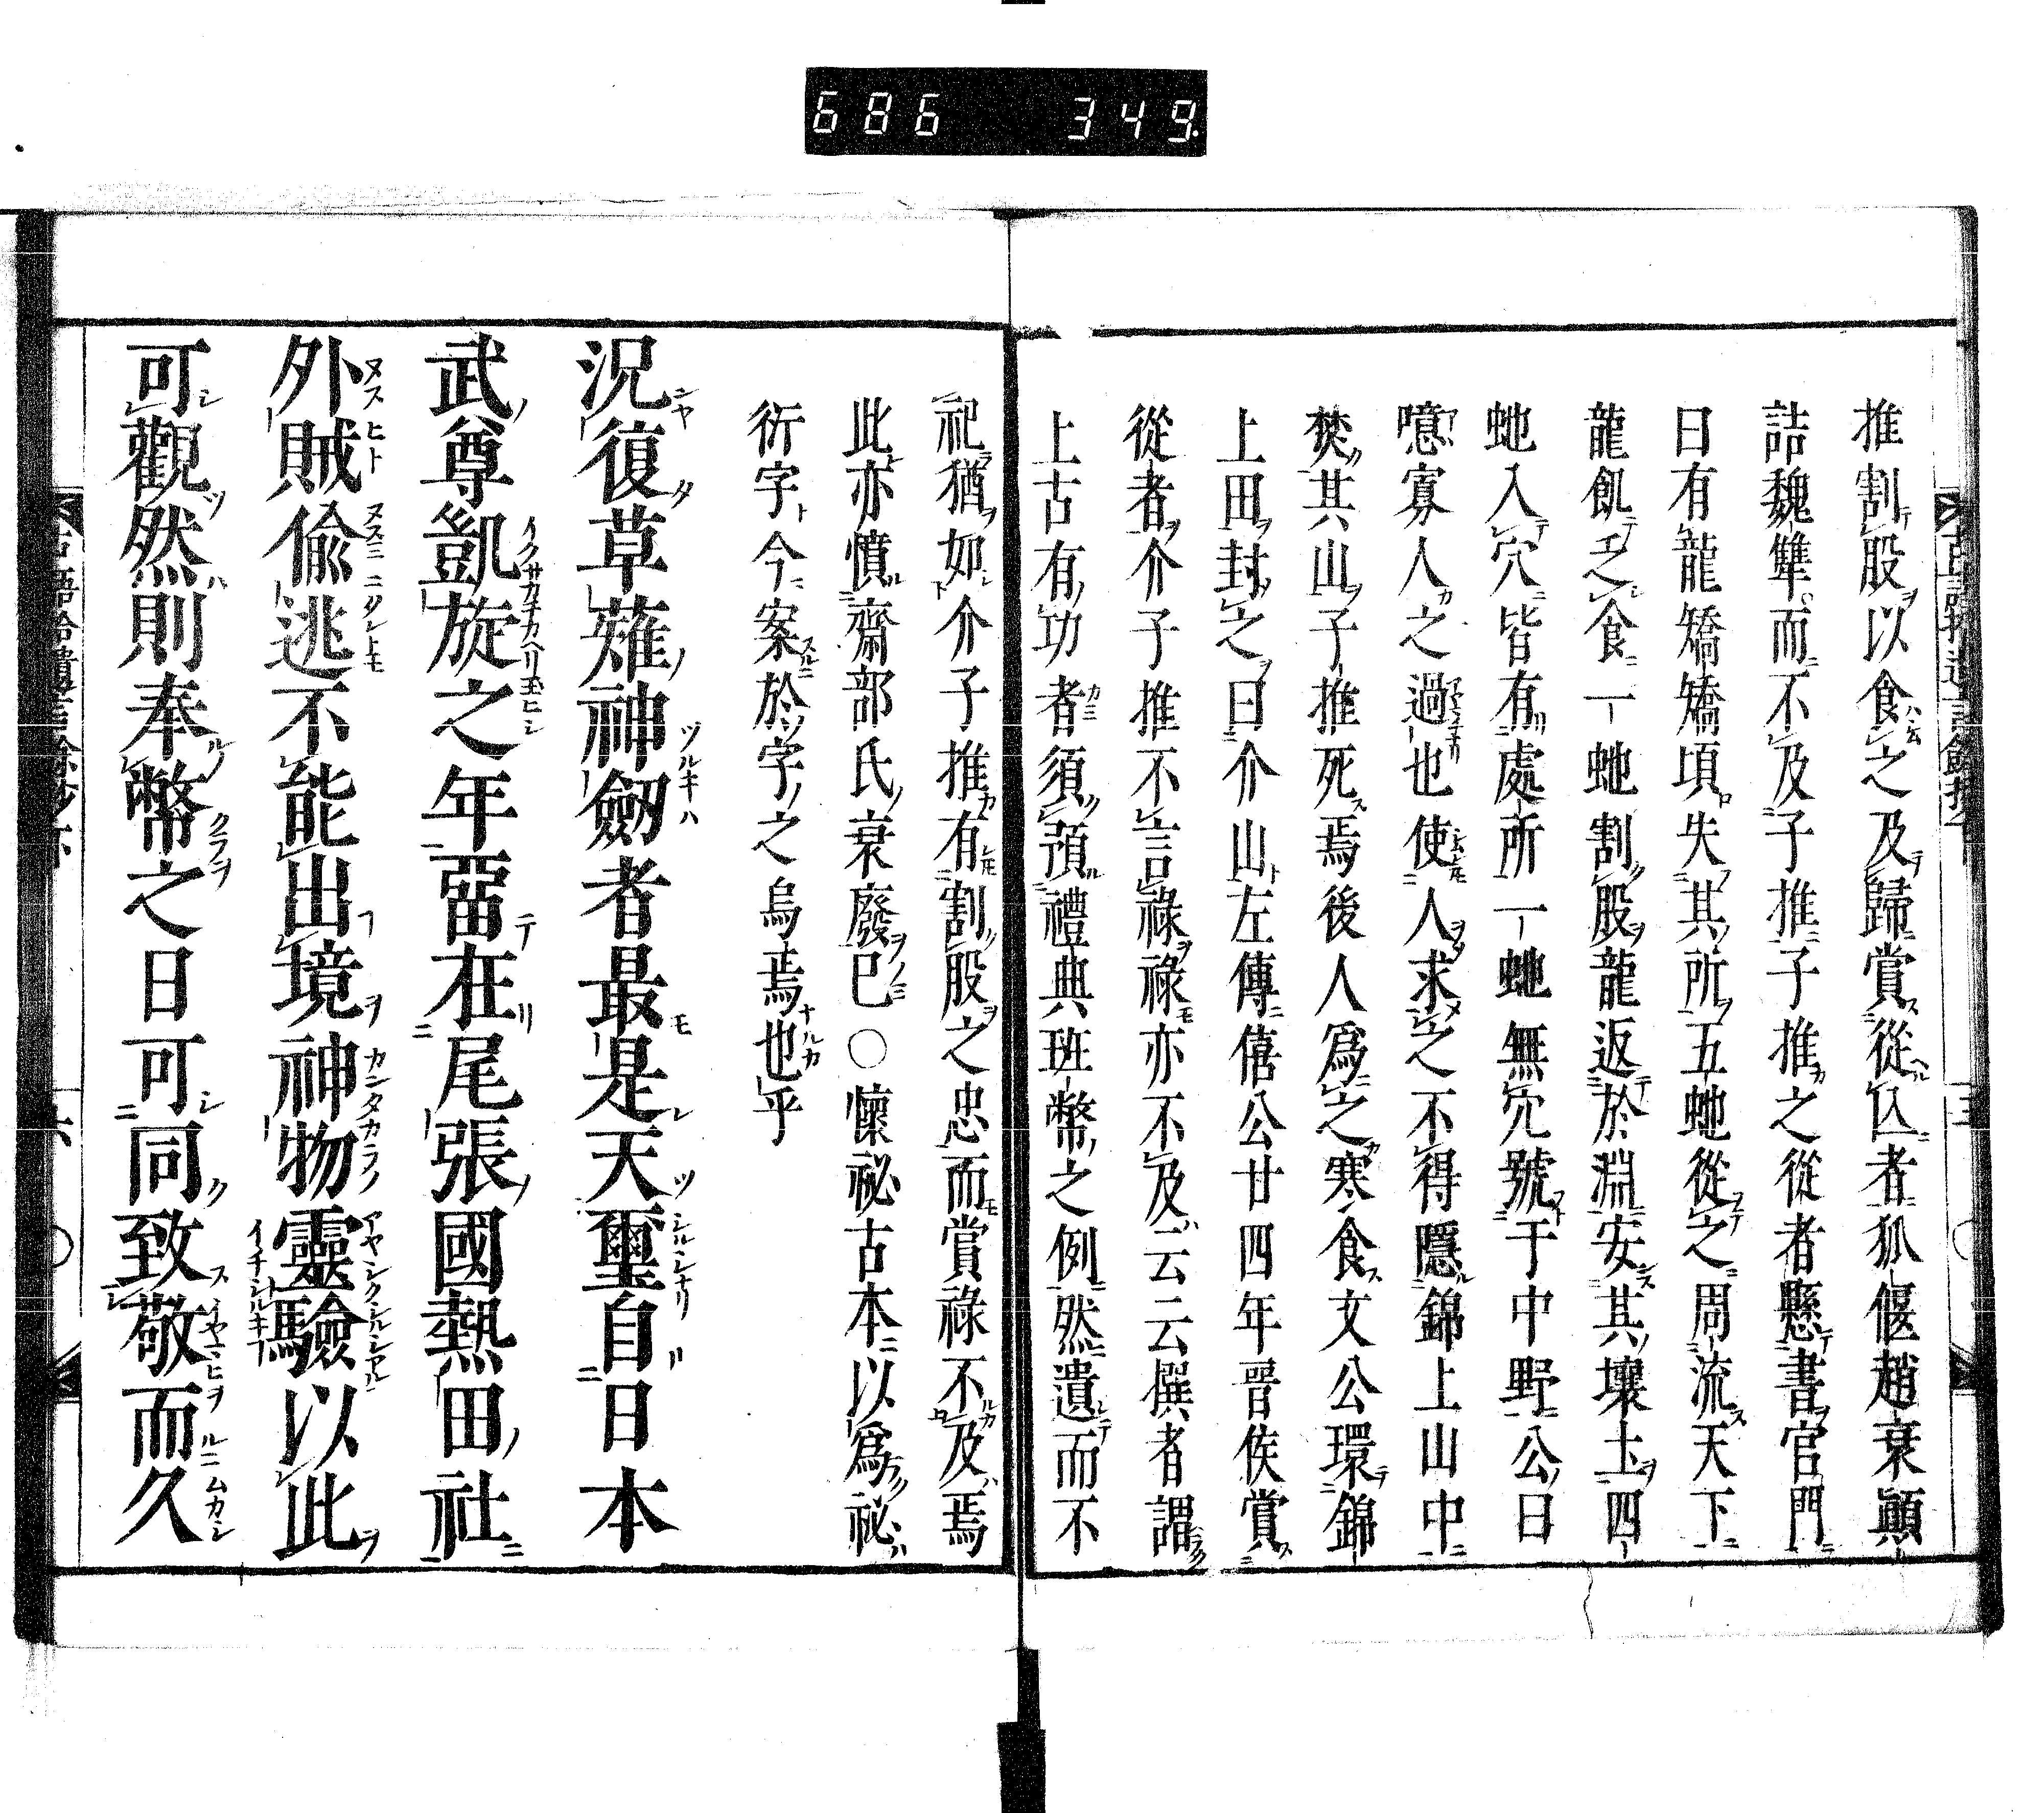 686 349
推割股以食之及歸賞從亾者狐偃趙衰顚
詰魏犨而不及子推子推之從者懸書官門
曰有龍矯矯頃失其所五虵從之周流天下
龍飢乏食一虵割股龍返於淵安其壤土四
虵入穴皆有處所一虵無穴號于中野公曰
噫寡人之過也使人求之不得隱錦上山中
焚其山子推死焉後人爲之寒食文公環錦
上田封之曰介山左傳僖公廿四年晉侯賞
從者介子推不言祿祿亦不及云云撰者謂
上古有功者須預禮典班幣之例然遺而不
祀猶如介子推有割股之忠而賞祿不及焉
此亦憤齋部氏衰廢已○懷祕古本以爲祕
衍字今案於字之烏焉也乎
況復草薙神劔者最是天璽自日本
武尊凱旋之年畱在尾張國熱田社
外賊偸逃不能出境神物靈驗以此
可觀然則奉幣之日可同致敬而久